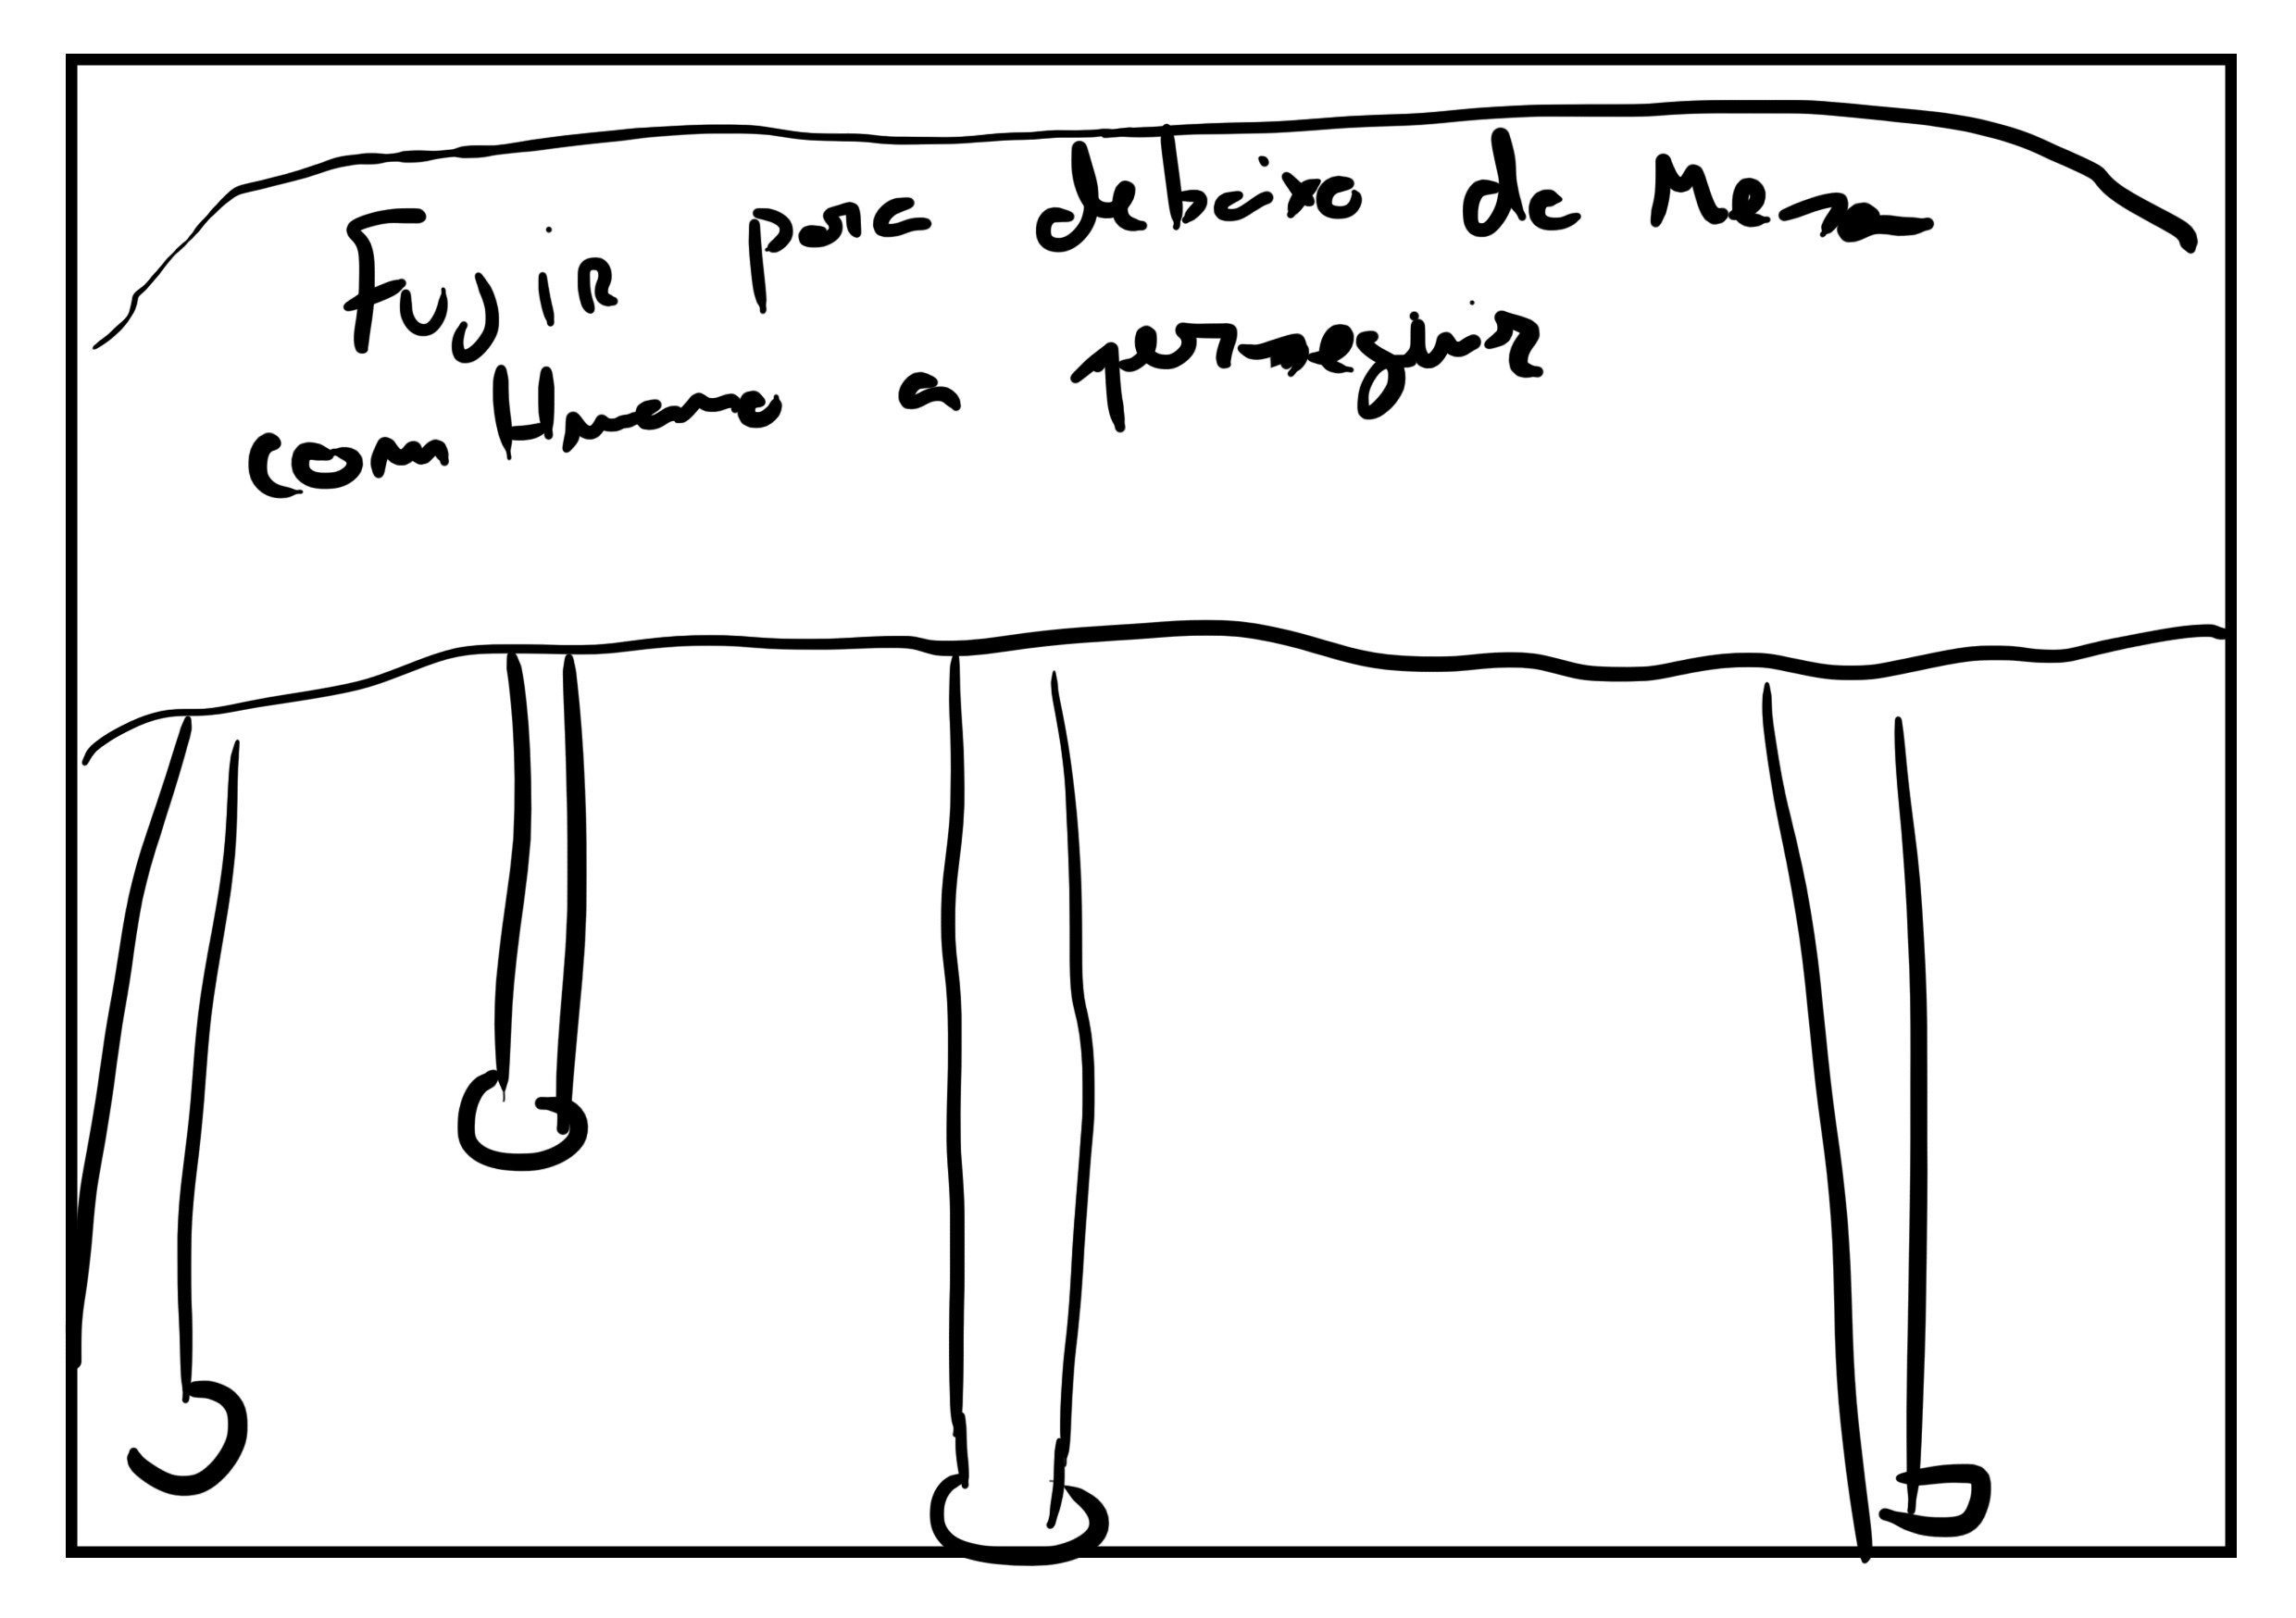 Fujir para debaixo da Mesa
com Humano a perseguir